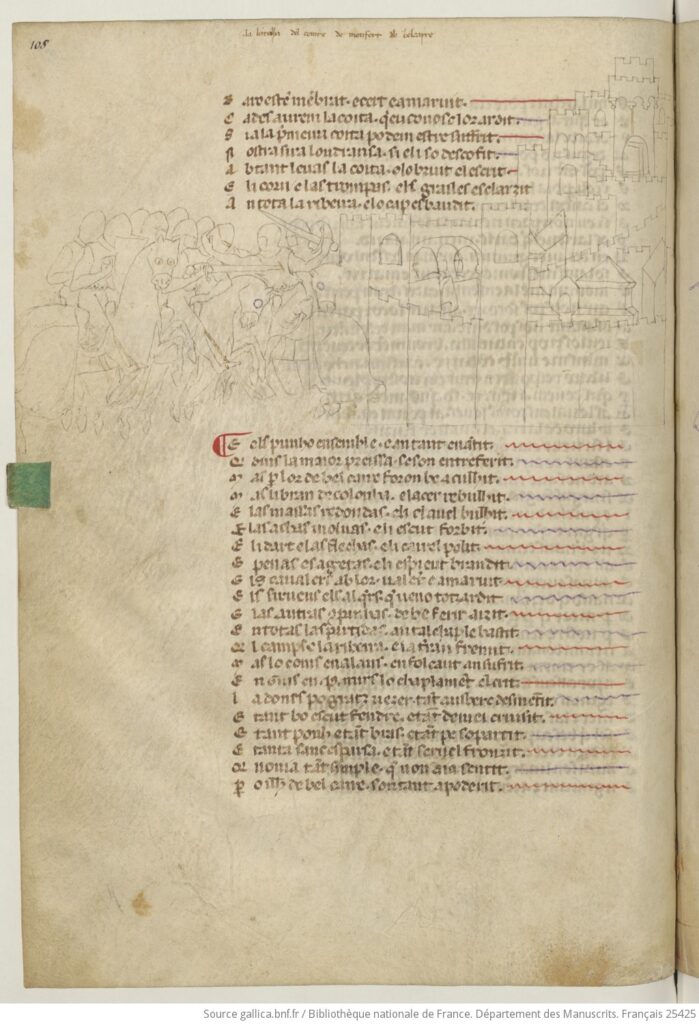 105
la batalla del comte de monfort & belcayre
B aro estem mēbrat. e cert e amaruit.
C ades aurem la coita. q̄u conosc lor ardit.
S i a la p̄meira coita podem estre suffrit.
N ostra sira lonransa. si eli so descofit.
A b tant leuas la coita. e lo bruit el escrit
E li corn e las trompas. els grailes esclarzit
A n tota la ribeira. e lo cap esbaudit.
E els punho ensemble. e an tant enātit.
Q̄ dins la maior preissa. se son entreferit.
M as p̱ lor de belcaire foron be aculhit.
M as li bran de colonha. e lacer rebulhit.
E las massas redondas. eli clauel bulhit.
E las apchas moluas. eli escut forbit.
E li dart e las flechas. eli cairel polit.
E penas e sagetas. eli espieut brandit.
E ls caualers ab lor ualēs e amaruit
E ls siruens els arq̄rs. q̄ ueno tot ardit
E las autras cōpanhas. de be ferir aizit.
E n totas las partidas. an tal chaple bastit.
Q̄ l camps e la ribeira. e la t̄ra n fremit.
M as lo coms en alaus. en folcaut an sufrit.
E n Guis en p. mirs lo chaplamēt el crit.
L a doncs pogratz uezer. tāt ausberc desmētit.
E tant bo escut fendre. e tāt demiei cruisit.
E tant ponh e tāt bras. e tāt pe so partit.
E tanta sanc esparsa. e tāt seruel fronzit.
Q̄ no n i a tāt simple. q̄ non aia sentit.
P̱ o ilh de bel caire. son tant apoderit.
Source gallica.bnf.fr / Bibliothèque nationale de France. Département des Manuscrits. Français 25425